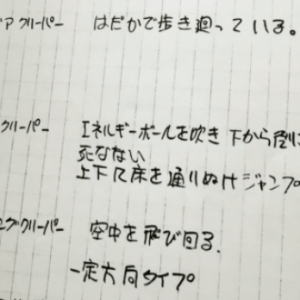 ア クリーパー はだかで歩き廻っている。
クリーパー エネルギーボールを吹き 下から倒
死なない
上下に床を通りぬけジャンプ
グクリーパー 空中を飛び回る.
一定方向タイプ